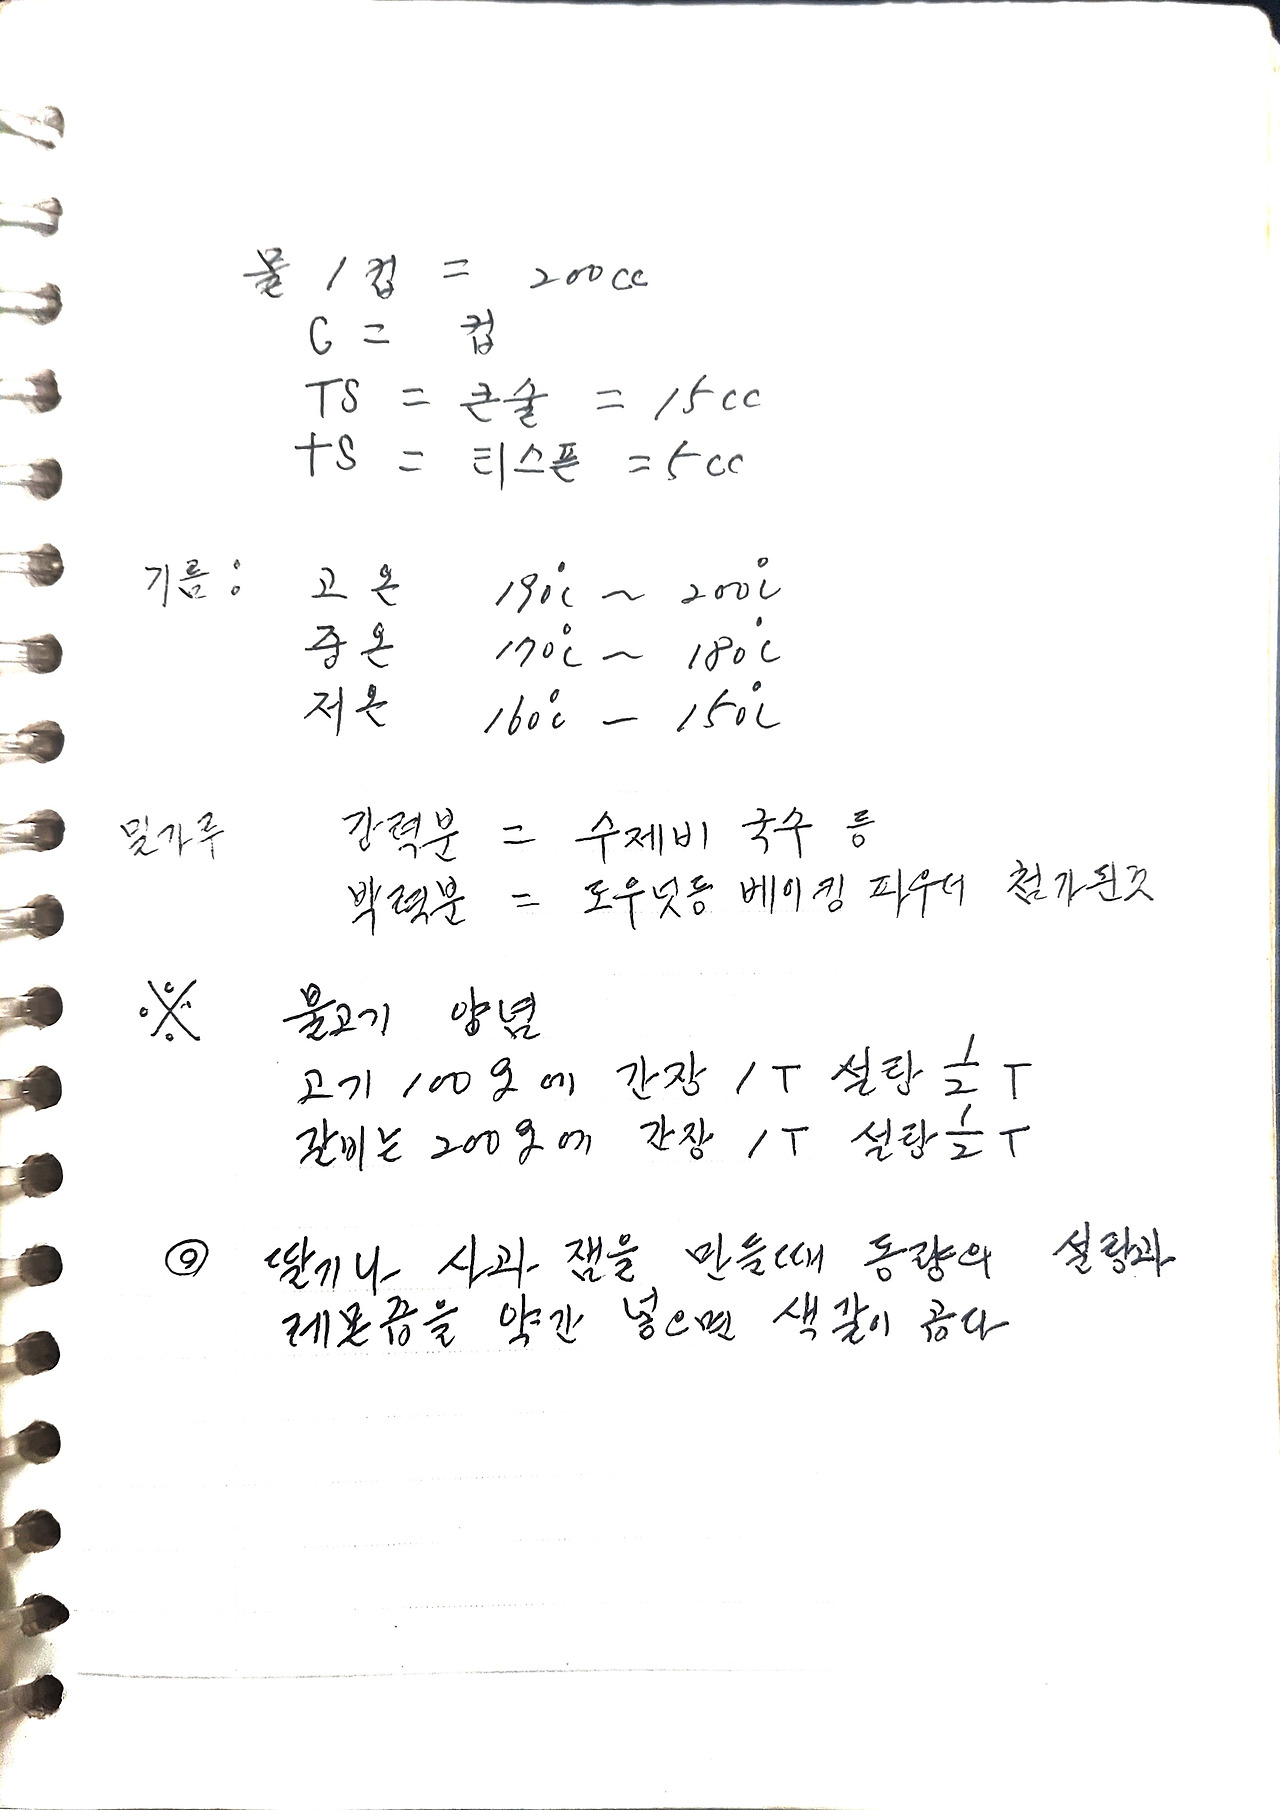 물 1컵 = 200cc
C = 컵
TS = 큰술 = 15cc
tS = 티스푼 = 5cc
기름: 고온 190℃ ~ 200℃
중온 170℃ ~ 180℃
저온 160℃ - 150℃
밀가루 강력분 = 수제비 국수 등
박력분 = 도우넛등 베이킹 파우더 첨가된것
※ 불고기 양념
고기 100g에 간장 1T 설탕 1/2 T
갈비는 200g에 간장 1T 설탕 1/2 T
딸기나 사과 잼을 만들때 동량의 설탕과
레몬즙을 약간 넣으면 색갈이 곱다